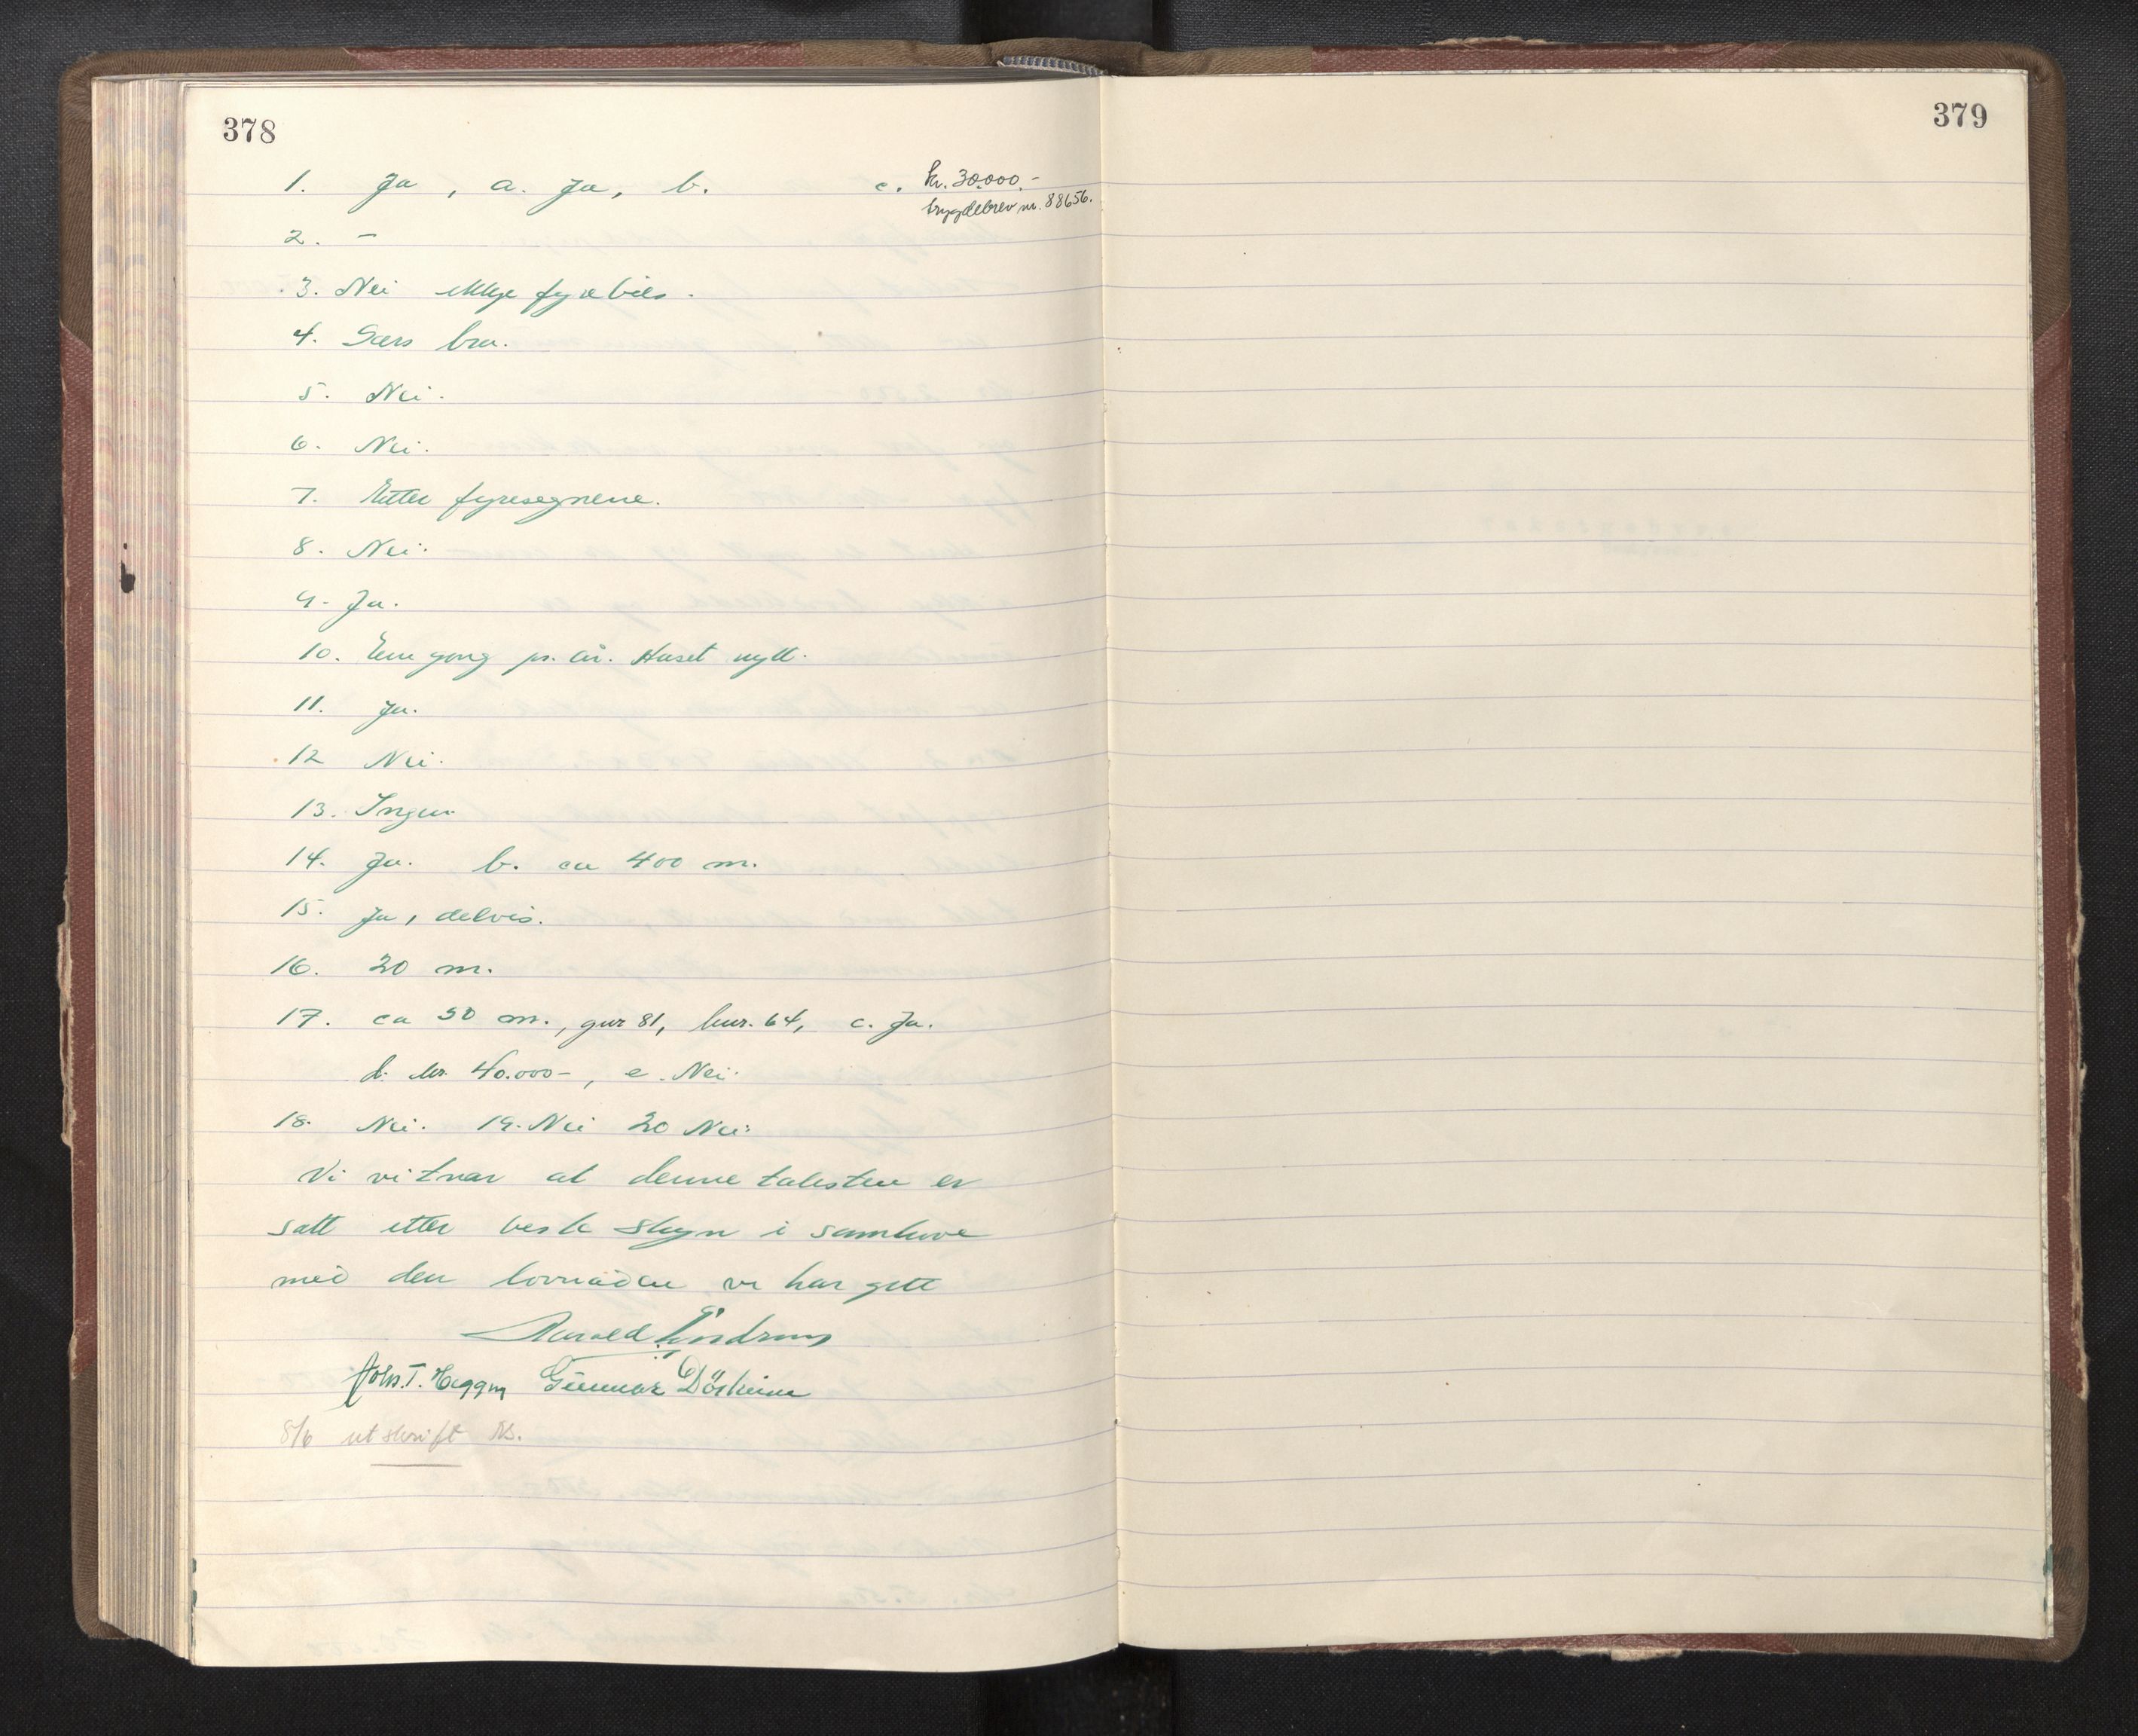 378
1. Ja, a. Ja, b. c. kr. 30.000.-
trygdebrev nr. 88656.
2. -
3. Nei ikkje fyrebils.
4. Særs bra.
5. Nei.
6. Nei.
7. Etter fyresegnene.
8. Nei.
9. Ja.
10. Ein gong pr. år. Huset nytt.
11. Ja.
12 Nei.
13. Ingen
14. Ja. b. ca 400 m.
15. Ja, delvis.
16. 20 m.
17. ca 50 m., gnr 81, bnr. 64, c. Ja.
d. kr. 40.000-, e. Nei.
18. Nei. 19. Nei 20 Nei.
Vi vitnar at denne taksten er
satt etter beste skyn i samhøve
med den lovnaden vi har gitt
Harald Endrens
Johs. T. Heggen Gunnar
8/6 utskrift
379